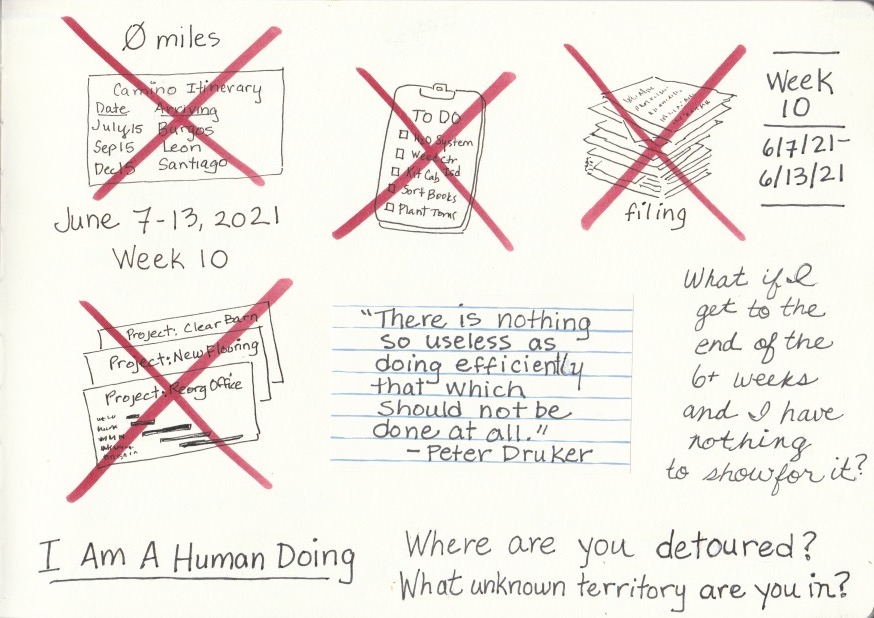 Ø miles
Camino Itinerary
Date Arriving
July 15 Burgos
Sep 15 Leon
Dec 15 Santiago
June 7-13, 2021
Week 10
TO DO
H2O System
Weed Ctr
Kit Cab Isd
Sort Books
Plant Toms
filing
Week
10
6/7/21-
6/13/21
Project: Clear Barn
Project: New Flooring
Project: Reorg Office
"There is nothing
so useless as
doing efficiently
that which
should not be
done at all."
- Peter Druker
What if I
get to the
end of the
6+ weeks
and I have
nothing
to show for it?
I Am A Human Doing
Where are you detoured?
What unknown territory are you in?